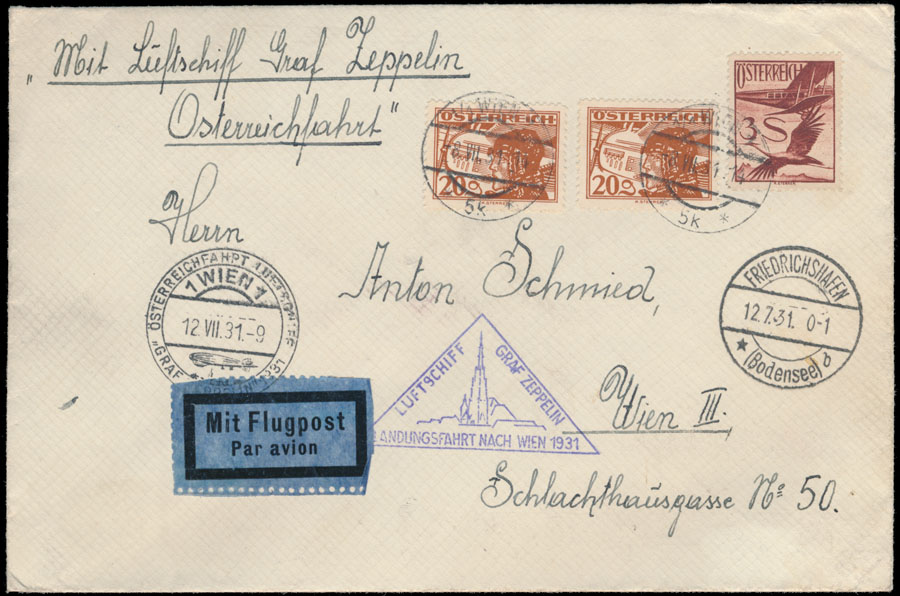 "Mit Luftschiff Graf Zeppelin
Österreichfahrt"
ÖSTERREICH
20 g
ÖSTERREICH
20 g
ÖSTERREICH
3 S
WIEN
VII.31
5k *
VII.31
5k *
Herrn
Anton Schmied,
ÖSTERREICHFAHRT LUFTSCHIFF
1 WIEN 1
12.VII.31.-9
"GRAF
1931
FRIEDRICHSHAFEN
12.7.31. 0-1
* (Bodensee) d
LUFTSCHIFF GRAF ZEPPELIN
LANDUNGSFAHRT NACH WIEN 1931
Wien III.
Mit Flugpost
Par avion
Schlachthausgasse No 50.